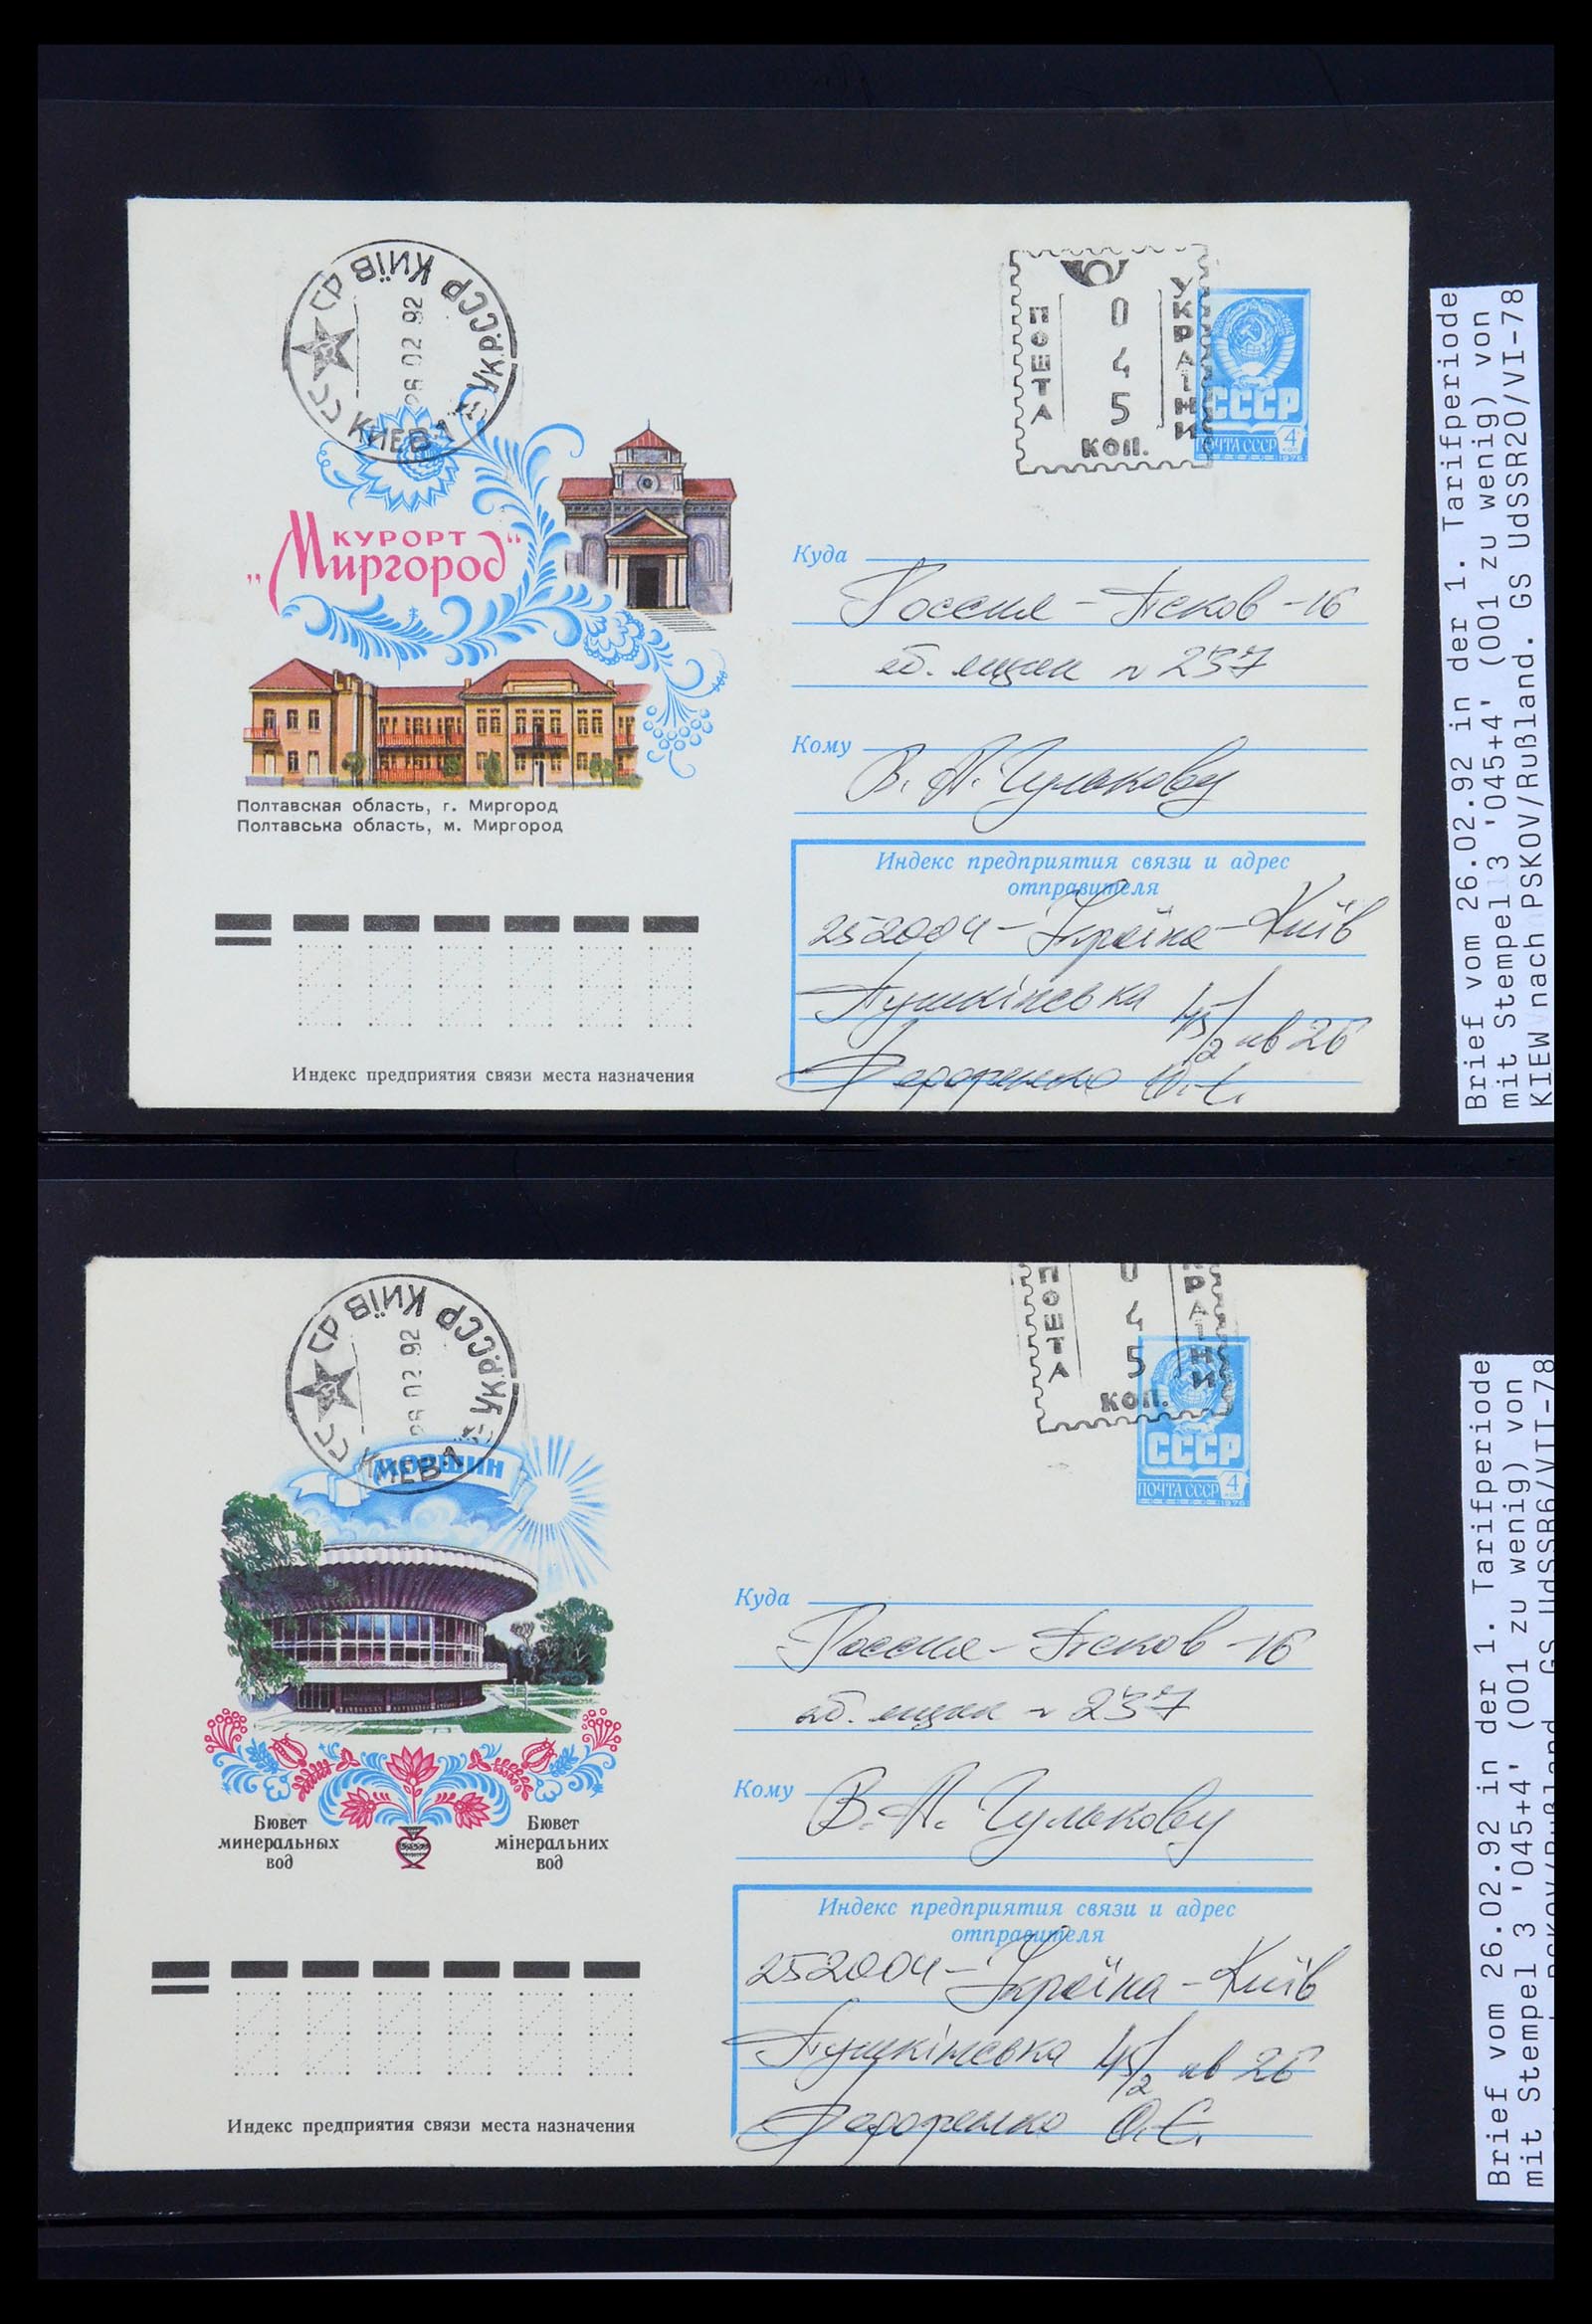 КИЇВ УКР.ССР
КИЕВ
26 02 92
ПОШТА
УКРАІНИ
0
4
5
КОП.
СССР
ПОЧТА СССР 4
1976
КУРОРТ
„Миргород“
Полтавская область, г. Миргород
Полтавська область, м. Миргород
Куда
Россия - Псков - 16
аб. ящик N 237
Кому
В. А. Чулькову
Индекс предприятия связи и адрес
отправителя
252004 - Україна - Київ
Пушкінська 45/2 кв 26
Федоренко О. Є.
Индекс предприятия связи места назначения
Brief vom 26.02.92 in der 1. Tarifperiode
mit Stempel 3 '045+4' (001 zu wenig) von
KIEW nach PSKOV/Rußland. GS UdSSR20/VI-78
КИЇВ УКР.ССР
КИЕВ
26 02 92
ПОШТА
РАІНИ
0
4
5
КОП.
СССР
ПОЧТА СССР 4
1976
МОРШИН
Бювет
минеральных
вод
Бювет
мінеральних
вод
Куда
Россия - Псков - 16
аб. ящик N 237
Кому
В. А. Чулькову
Индекс предприятия связи и адрес
отправителя
252004 - Україна - Київ
Пушкінська 45/2 кв 26
Федоренко О. Є.
Индекс предприятия связи места назначения
Brief vom 26.02.92 in der 1. Tarifperiode
mit Stempel 3 '045+4' (001 zu wenig) von
PSKOV/Rußland GS UdSSR6/VII-78